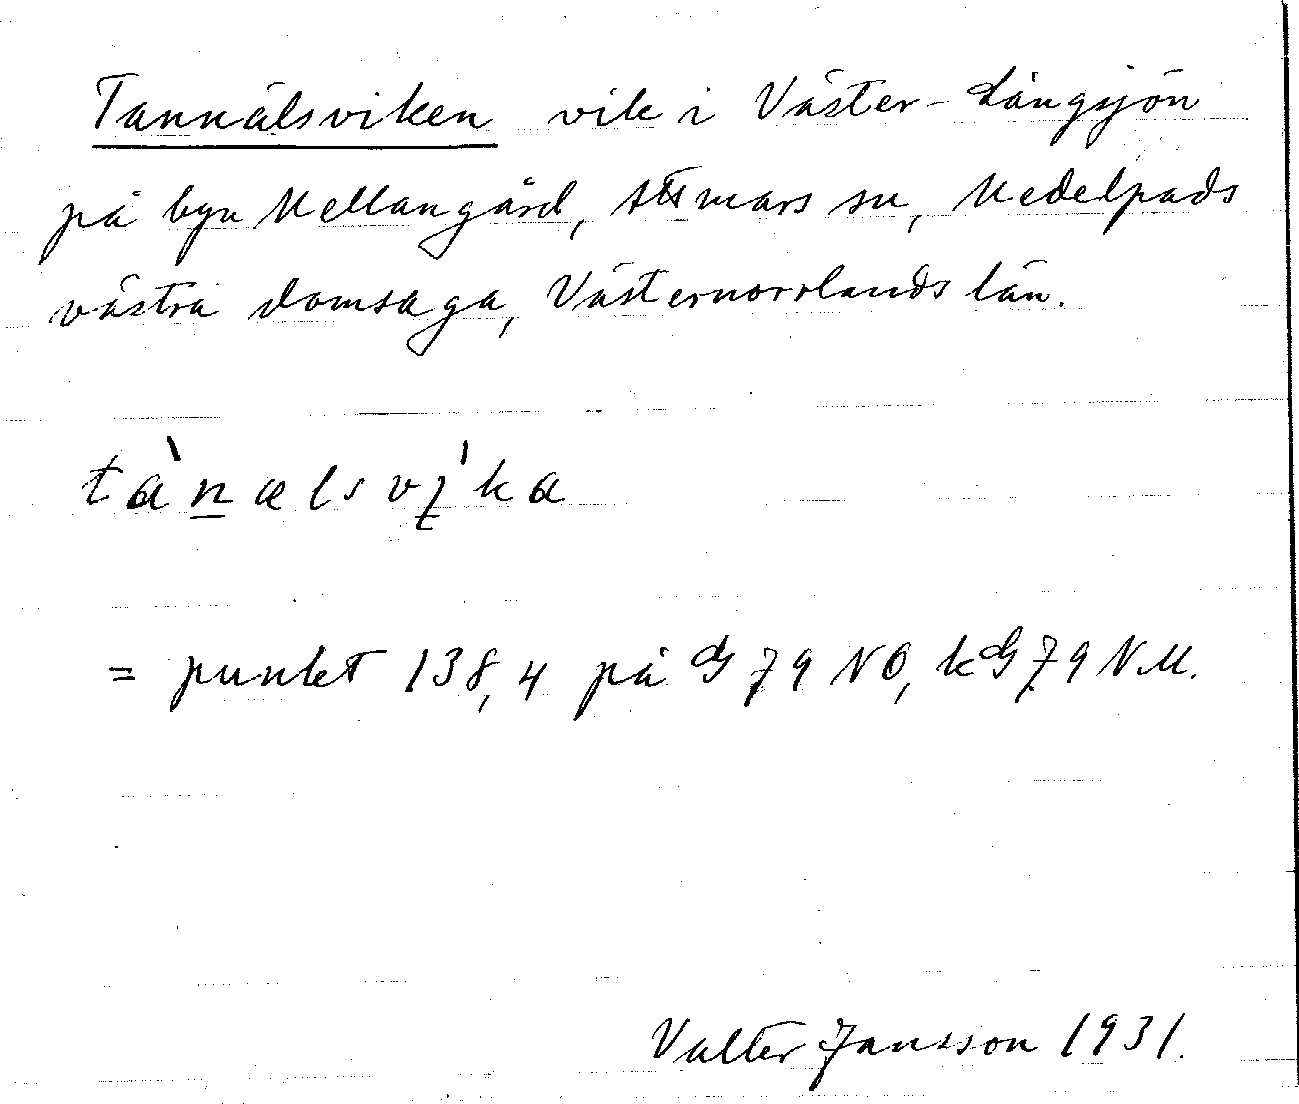 Tannälsviken vik i Väster-Långsjön
på byn Mellangård, Attmars sn, Medelpads
västra domsaga, Västernorrlands län.
tànælsvı̣́ka
= punkt 138,4 på G 79 NO, kG 79 NM.
Valter Jansson 1931.